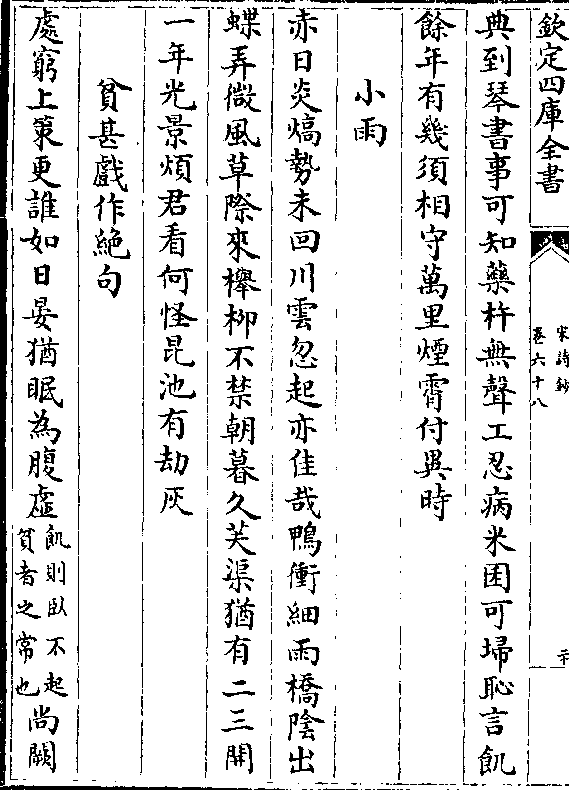 欽定四庫全書
宋詩鈔
卷六十八
典到琴書事可知藥杵無聲工忍病米囷可埽恥言飢
餘年有幾須相守萬里煙霄付異時
小雨
赤日炎熇勢未回川雲忽起亦佳哉鴨衝細雨橋陰出
蝶弄微風草際來櫸柳不禁朝暮久芙渠猶有二三開
一年光景煩君看何怪昆池有劫灰
貧甚戲作絶句
處窮上策更誰如日晏猶眠為腹虛飢則臥不起貧者之常也尚闕